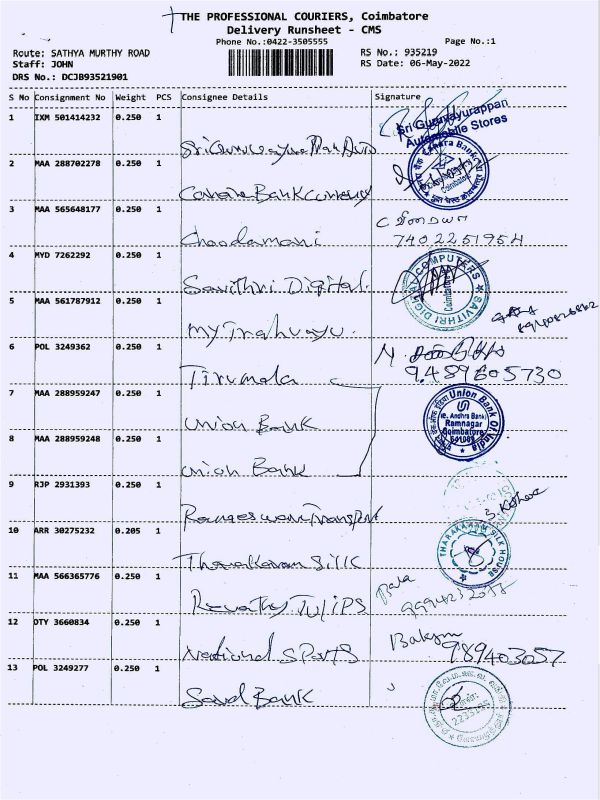 THE PROFESSIONAL COURIERS, Coimbatore
Delivery Runsheet - CMS
Phone No.:0422-3505555
Page No.:1
Route: SATHYA MURTHY ROAD
RS No.: 935219
Staff: JOHN
RS Date: 06-May-2022
DRS No.: DCJB93521901
S No Consignment No Weight PCS Consignee Details Signature
1 IXM 501414232 0.250 1
Sri Guruvayurappan
Automobile Stores
2 MAA 288702278 0.250 1 Canara Bank
Canara Bank
Coimbatore
3 MAA 565648177 0.250 1 Choodamani
7402251954
4 MYD 7262292 0.250 1 Savithri Digital.
SAVITHRI DIGITAL COMPUTERS
Coimbatore
5 MAA 561787912 0.250 1
6 POL 3249362 0.250 1 Tirumala
9489605730
7 MAA 288959247 0.250 1 Union Bank
Union Bank Of India
(e. Andhra Bank)
Ramnagar
Coimbatore
641009
8 MAA 288959248 0.250 1 Union Bank
9 RJP 2931393 0.250 1
10 ARR 30275232 0.205 1 Tharakaram Silk
THARAKARAM SILK HOUSE
11 MAA 566365776 0.250 1 Revathy TULIPS
Bala
12 DTY 3660834 0.250 1 National SPorts
789403057
13 POL 3249277 0.250 1 Bank